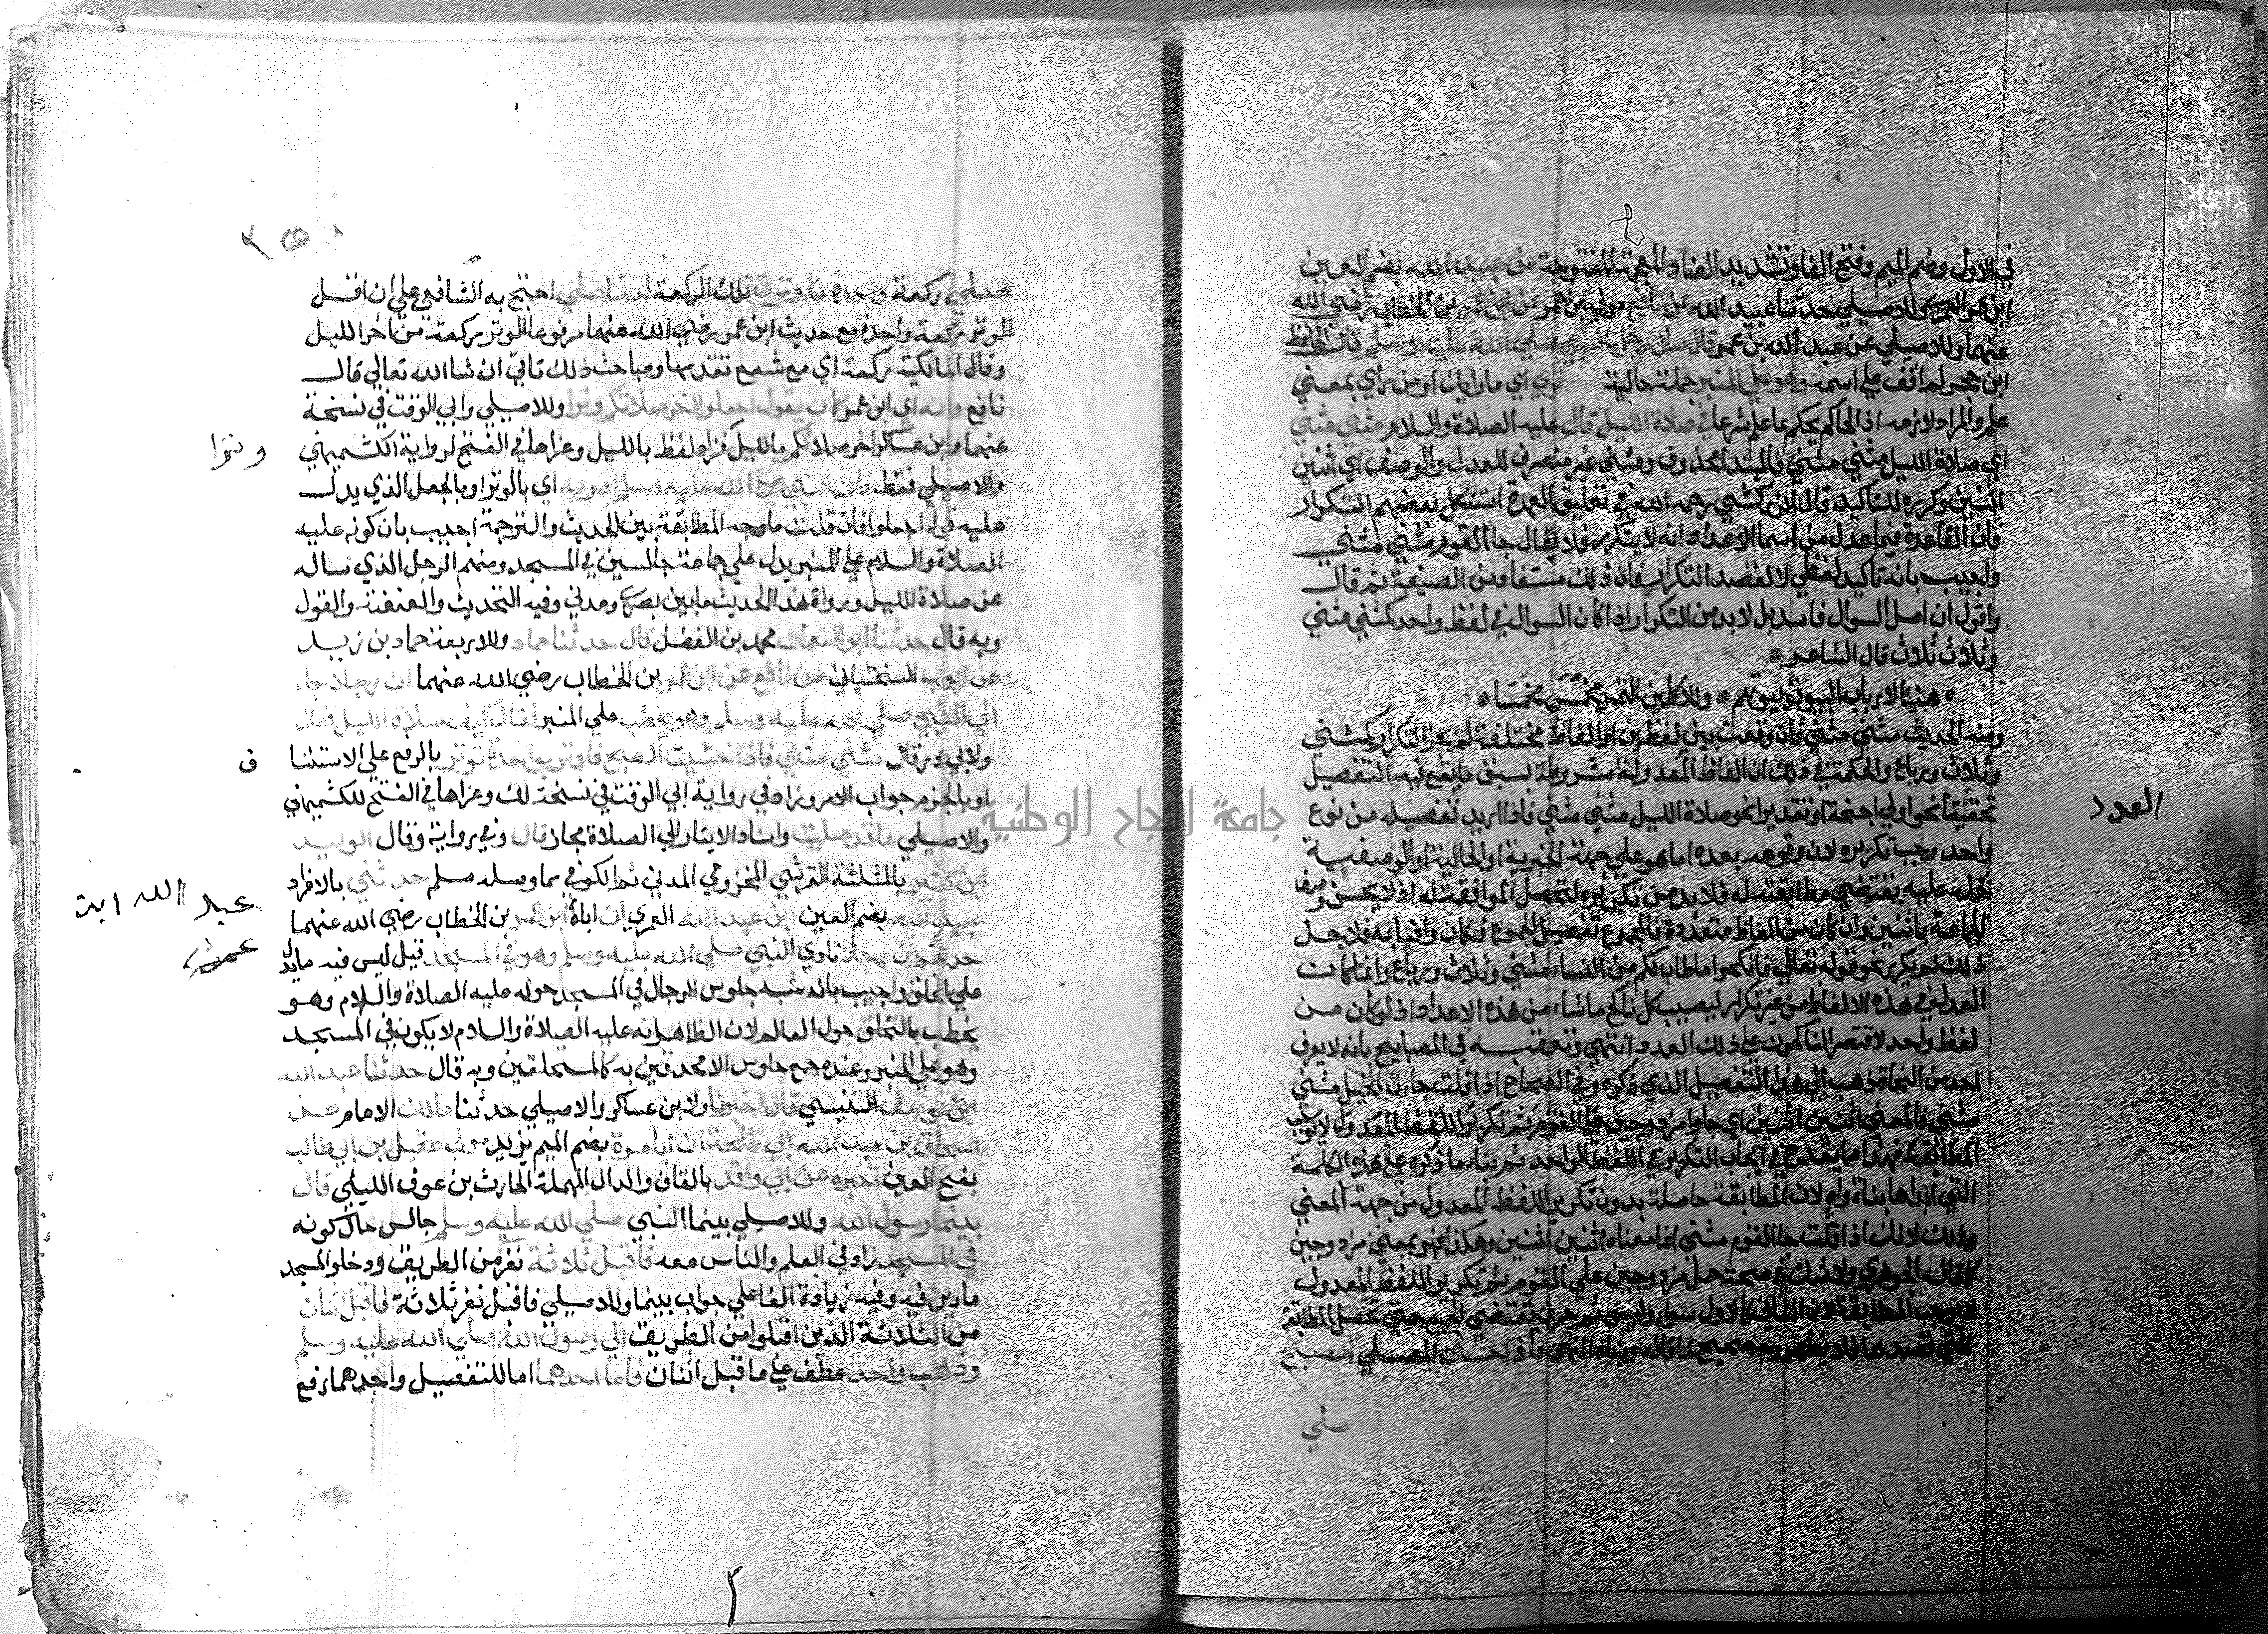 في الاول وضم الميم وفتح الفا وتشديد الضاد المعجمة المفتوحة عن عبيد الله بضم العين
ابن عمر العمري وللاصيلي حدثنا عبيد الله عن نافع مولي ابن عمر عن ابن عمر بن الخطاب رضي الله
عنهما وللاصيلي عن عبد الله بن عمر قال سال رجل النبي صلي الله عليه وسلم قال الحافظ
ابن حجر لم اقف علي اسمه وهو علي المنبر جملة حالية تري اي ما رايك او من راي بمعني
علم والمراد لازمه اذ الحاكم يحكم بما علم شرعا في صلاة الليل قال عليه الصلاة والسلام مثني مثني
اي صلاة الليل مثني مثني فالمبتدا محذوف ومثني غير منصرف للعدل والوصف اي اثنين
اثنين وكرره للتاكيد قال الزركشي رحمه الله في تعليق العمدة استشكل بعضهم التكرار
فان القاعدة فيما عدل من اسما الاعداد انه لا يتكرر فلا يقال جا القوم مثني مثني
واجيب بانه تاكيد لفظي لا لقصد التكرار فان ذلك مستفاد من الصيغة ثم قال
واقول ان اصل السوال فاسد بل لا بد من التكرار اذا كان السوال في لفظ واحد كمثني مثني
وثلاث ثلاث قال الشاعر
هنيا لارباب البيوت بيوتهم وللاكلين التمر مخمس مخمسا
ومنه الحديث مثني مثني فان وقعت بين لفظين او الفاظ مختلفة لم يجز التكرار كمثني
وثلاث ورباع والحكمة في ذلك ان الفاظ المعدولة مشروطة بسبق ما يقع فيه التفصيل
تحقيقا نحو اولي اجنحة او تقديرا نحو صلاة الليل مثني مثني فاذا اريد تفصيله من نوع
العدد
واحد وجب تكريره لان وقوعه بعده اما هو علي جهة الخبرية او الحالية او الوصفية
فحمله عليه يقتضي مطابقته له فلا بد من تكريره لتحصل الموافقة له اذ لا يحسن وصف
الجماعة باثنين وان كان من الفاظ متعددة فالمجموع تفصيل للمجموع فكان وافيا به فلاجل
ذلك لم يكرر نحو قوله تعالي فانكحوا ما طاب لكم من النساء مثني وثلاث ورباع وانما كانت
العدل في هذه الالفاظ من غير تكرار ليصيب كل ناكح ما شاء من هذه الاعداد اذ لو كان من
لفظ واحد لاقتصر الناكحون علي ذلك العدد انتهي وتعقبه في المصابيح بانه لا يعرف
احد من النحاة ذهب الي هذا التفصيل الذي ذكره وفي الصحاح اذا قلت جات الخيل مثني
مثني فالمعني اثنين اثنين اي جاوا مزدوجين علي القوم ثم تكرير اللفظ المعدول لا يوجب
المطابقة فهذا مما يقدح في ايجاب التكرير في اللفظ الواحد ثم بناء ما ذكره علي هذه الحكمة
التي ابداها بناة واه لان المطابقة حاصلة بدون تكرير اللفظ المعدول من جهة المعني
وذلك لانك اذا قلت جا القوم مثني انما معناه اثنين اثنين وهكذا فهو بمعني مزدوجين
كما قاله الجوهري ولا شك في صحة حمل مزدوجين علي القوم ثم تكرير اللفظ المعدول
لا يوجب المطابقة لان الثاني كالاول سوا وليس ثم حرف يقتضي الجمع حتي تحصل المطابقة
التي قصدها فلا يظهر وجه صحيح لما قاله وبناه انتهي فاذا خشي المصلي الصبح
صلي
صلي ركعة واحدة فاوترت تلك الركعة له ما صلي احتج به الشافعي علي ان اقل
الوتر ركعة واحدة مع حديث ابن عمر رضي الله عنهما مرفوعا الوتر ركعة من اخر الليل
وقال المالكية ركعة اي مع شفع تقدمها ومباحث ذلك تاتي ان شا الله تعالي قال
نافع وانه اي ابن عمر كان يقول اجعلوا اخر صلاتكم وترا وللاصيلي وابي الوقت في نسخة
عنهما وابن عساكر اخر صلاتكم بالليل فزاد لفظ بالليل وعزاها في الفتح لرواية الكشميهني
وترا
والاصيلي فقط فان النبي صلي الله عليه وسلم امر به اي بالوتر او بالجعل الذي يدل
عليه قوله اجعلوا فان قلت ما وجه المطابقة بين الحديث والترجمة اجيب بان كونه عليه
الصلاة والسلام علي المنبر يدل علي جماعة جالسين في المسجد ومنهم الرجل الذي ساله
عن صلاة الليل ورواة هذا الحديث ما بين بصري ومدني وفيه التحديث والعنعنة والقول
وبه قال حدثنا ابو النعمان محمد بن الفضل قال حدثنا حماد وللاربعة حماد بن زيد
عن ايوب السختياني عن نافع عن ابن عمر بن الخطاب رضي الله عنهما ان رجلا جاء
الي النبي صلي الله عليه وسلم وهو يخطب علي المنبر فقال كيف صلاة الليل فقال
ولابي ذر قال مثني مثني فاذا خشيت الصبح فاوتر بواحدة توتر بالرفع علي الاستئنا
ف
او بالجزم جواب الامر وزاد في رواية ابي الوقت في نسخة لك وعزاها في الفتح للكشميهني
والاصيلي ما قد صليت واسناد الايتار الي الصلاة مجاز قال وفي رواية وقال الوليد
ابن كثير بالمثلثة القرشي المخزومي المدني ثم الكوفي مما وصله مسلم حدثني بالافراد
عبيد الله بضم العين ابن عبد الله العمري ان اباه ابن عمر بن الخطاب رضي الله عنهما
عبد الله ابن
عمر
حدثهم ان رجلا نادي النبي صلي الله عليه وسلم وهو في المسجد قيل ليس فيه ما يدل
علي الحلق واجيب بانه شبه جلوس الرجال في المسجد حوله عليه الصلاة والسلام وهو
يخطب بالتحلق حول العالم لان الظاهر انه عليه الصلاة والسلام لا يكون في المسجد
وهو علي المنبر وعنده جمع جلوس الا محدقين به كالمتحلقين وبه قال حدثنا عبد الله
ابن يوسف التنيسي قال اخبرنا ولابن عساكر والاصيلي حدثنا مالك الامام عن
اسحاق بن عبد الله ابي طلحة ان ابا مرة بضم الميم يزيد مولي عقيل بن ابي طالب
بفتح العين اخبره عن ابي واقد بالقاف والدال المهملة الحارث بن عوف الليثي قال
بينما رسول الله وللاصيلي بينما النبي صلي الله عليه وسلم جالس حال كونه
في المسجد زاد في العلم والناس معه فاقبل ثلاثة نفر من الطريق ودخلوا المسجد
مارين فيه وفيه زيادة الفا علي جواب بينما وللاصيلي فاقبل نفر ثلاثة فاقبل اثنان
من الثلاثة الذين اقبلوا من الطريق الي رسول الله صلي الله عليه وسلم
وذهب واحد عطف علي ما قبل اثنان فاما احدهما اما للتفصيل واحدهما رفع
جامعة النجاح الوطنية